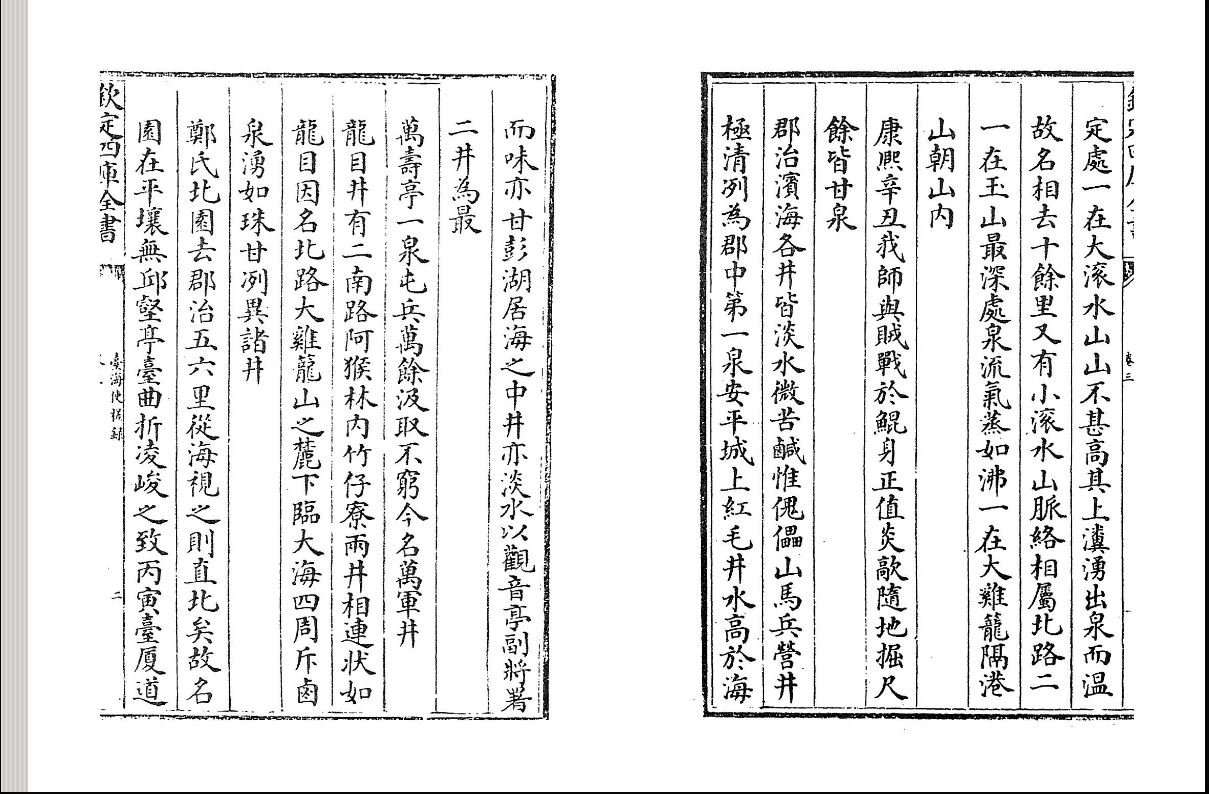 定處一在大滚水山山不甚高其上瀵湧出泉而温
故名相去十餘里又有小滚水山脈絡相屬北路二
一在玉山最深處泉流氣蒸如沸一在大雞籠隔港
山朝山内
康熙辛丑我師與賊戰於鯤身正值炎歊隨地掘尺
餘皆甘泉
郡治濱海各井皆淡水微苦鹹惟傀儡山馬兵營井
極清冽為郡中第一泉安平城上紅毛井水高於海
卷三
而味亦甘彭湖居海之中井亦淡水以觀音亭副將署
二井為最
萬壽亭一泉屯兵萬餘汲取不窮今名萬軍井
龍目井有二南路阿猴林内竹仔寮兩井相連狀如
龍目因名北路大雞籠山之麓下臨大海四周斥鹵
泉湧如珠甘冽異諸井
鄭氏北園去郡治五六里從海視之則直北矣故名
園在平壤無邱壑亭臺曲折凌峻之致丙寅臺厦道
欽定四庫全書
臺海使槎錄
二